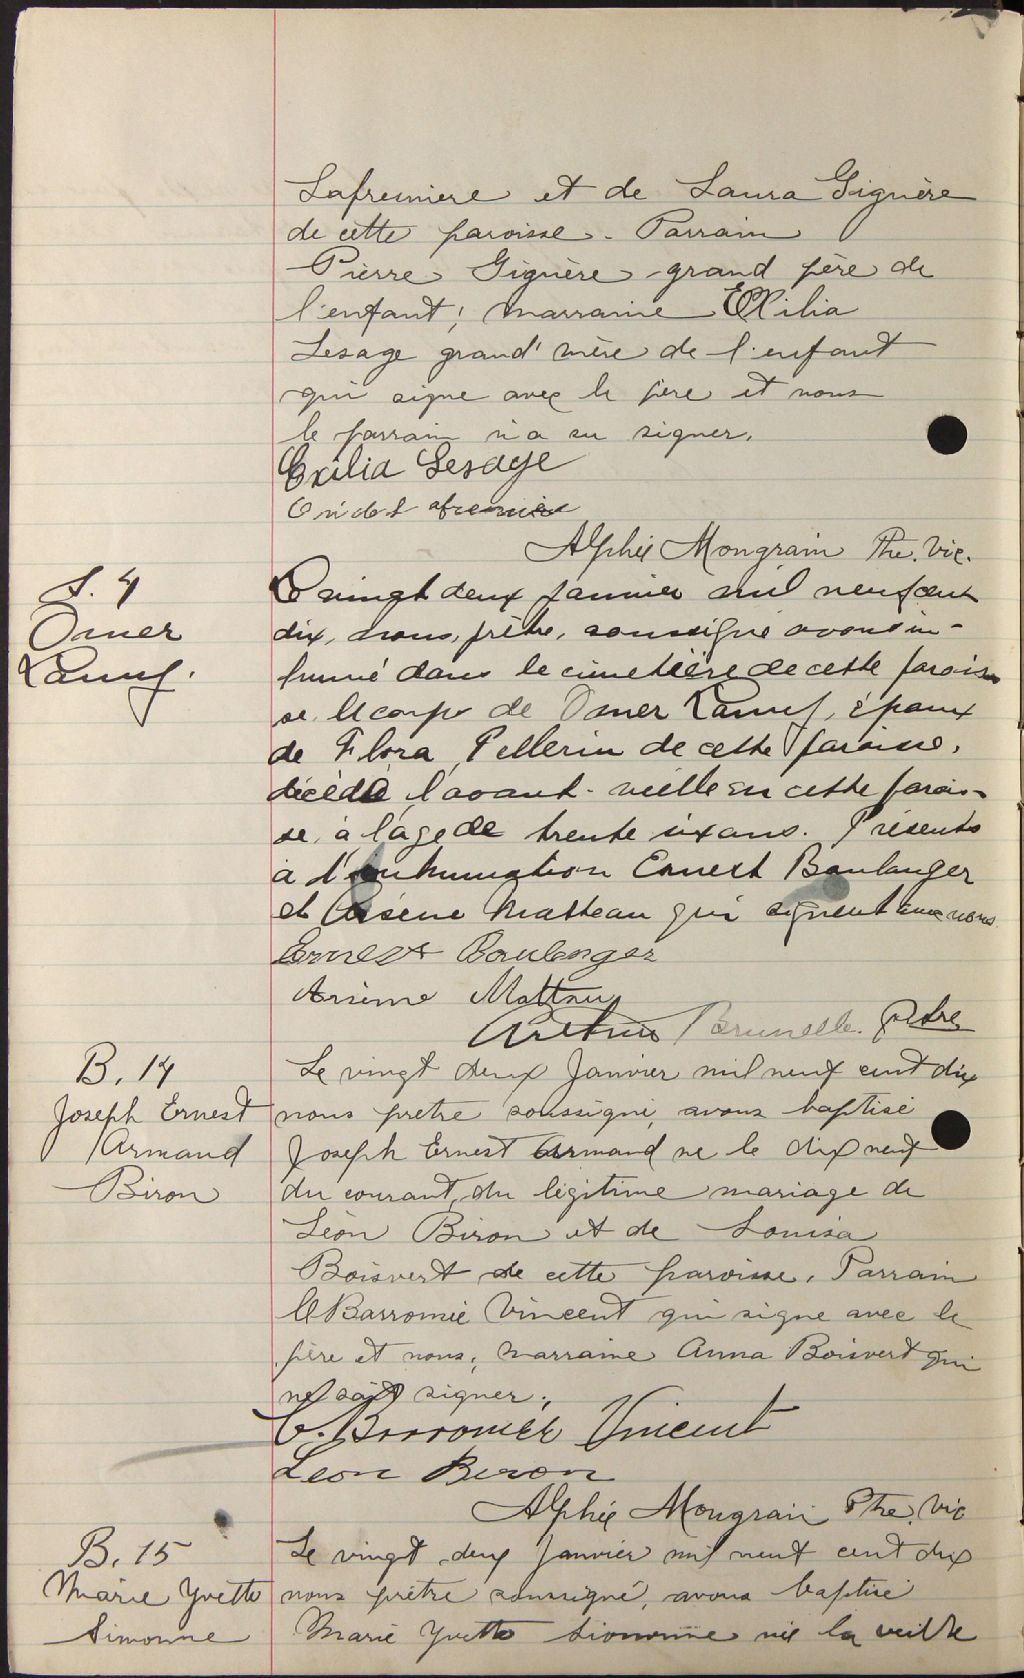 Lafreniere et de Laura Giguère
de cette paroisse. Parrain
Pierre Giguère grand père de
l'enfant; marraine Exilia
Lesage grand'mère de l'enfant
qui signe avec le père et nous
le parrain n'a su signer.
Exilia Lesage
Alphée Mongrain Ptre. Vic.
S. 4
Omer
Le vingt deux janvier mil neuf cent
dix, nous, prêtre, soussigné avons in-
humé dans le cimetière de cette parois
se, le corps de Omer époux
de Flora Pellerin de cette paroisse,
décédé l'avant-veille en cette parois-
se, à l'âge de trente six ans. Présents
à l'inhumation Ernest Boulanger
et Arsène Matteau qui signent avec nous.
Ernest Boulanger
Arsène Matteau
Arthur Brunelle. ptre
B. 14
Joseph Ernest
Armand
Biron
Le vingt deux Janvier mil neuf cent dix
nous pretre soussigné, avons baptisé
Joseph Ernest Armand né le dix neuf
du courant, du légitime mariage de
Léon Biron et de Louisa
Boisvert de cette paroisse, Parrain
C Barromée Vincent qui signe avec le
père et nous; marraine Anna Boisvert qui
ne sait signer.
C. Borromée Vincent
Leon Biron
Alphée Mongrain Ptre. Vic
B. 15
Marie Yvette
Simonne
Le vingt deux Janvier mil neuf cent dix
nous prêtre soussigné, avons baptisé
Marie Yvette Simonne née la veille